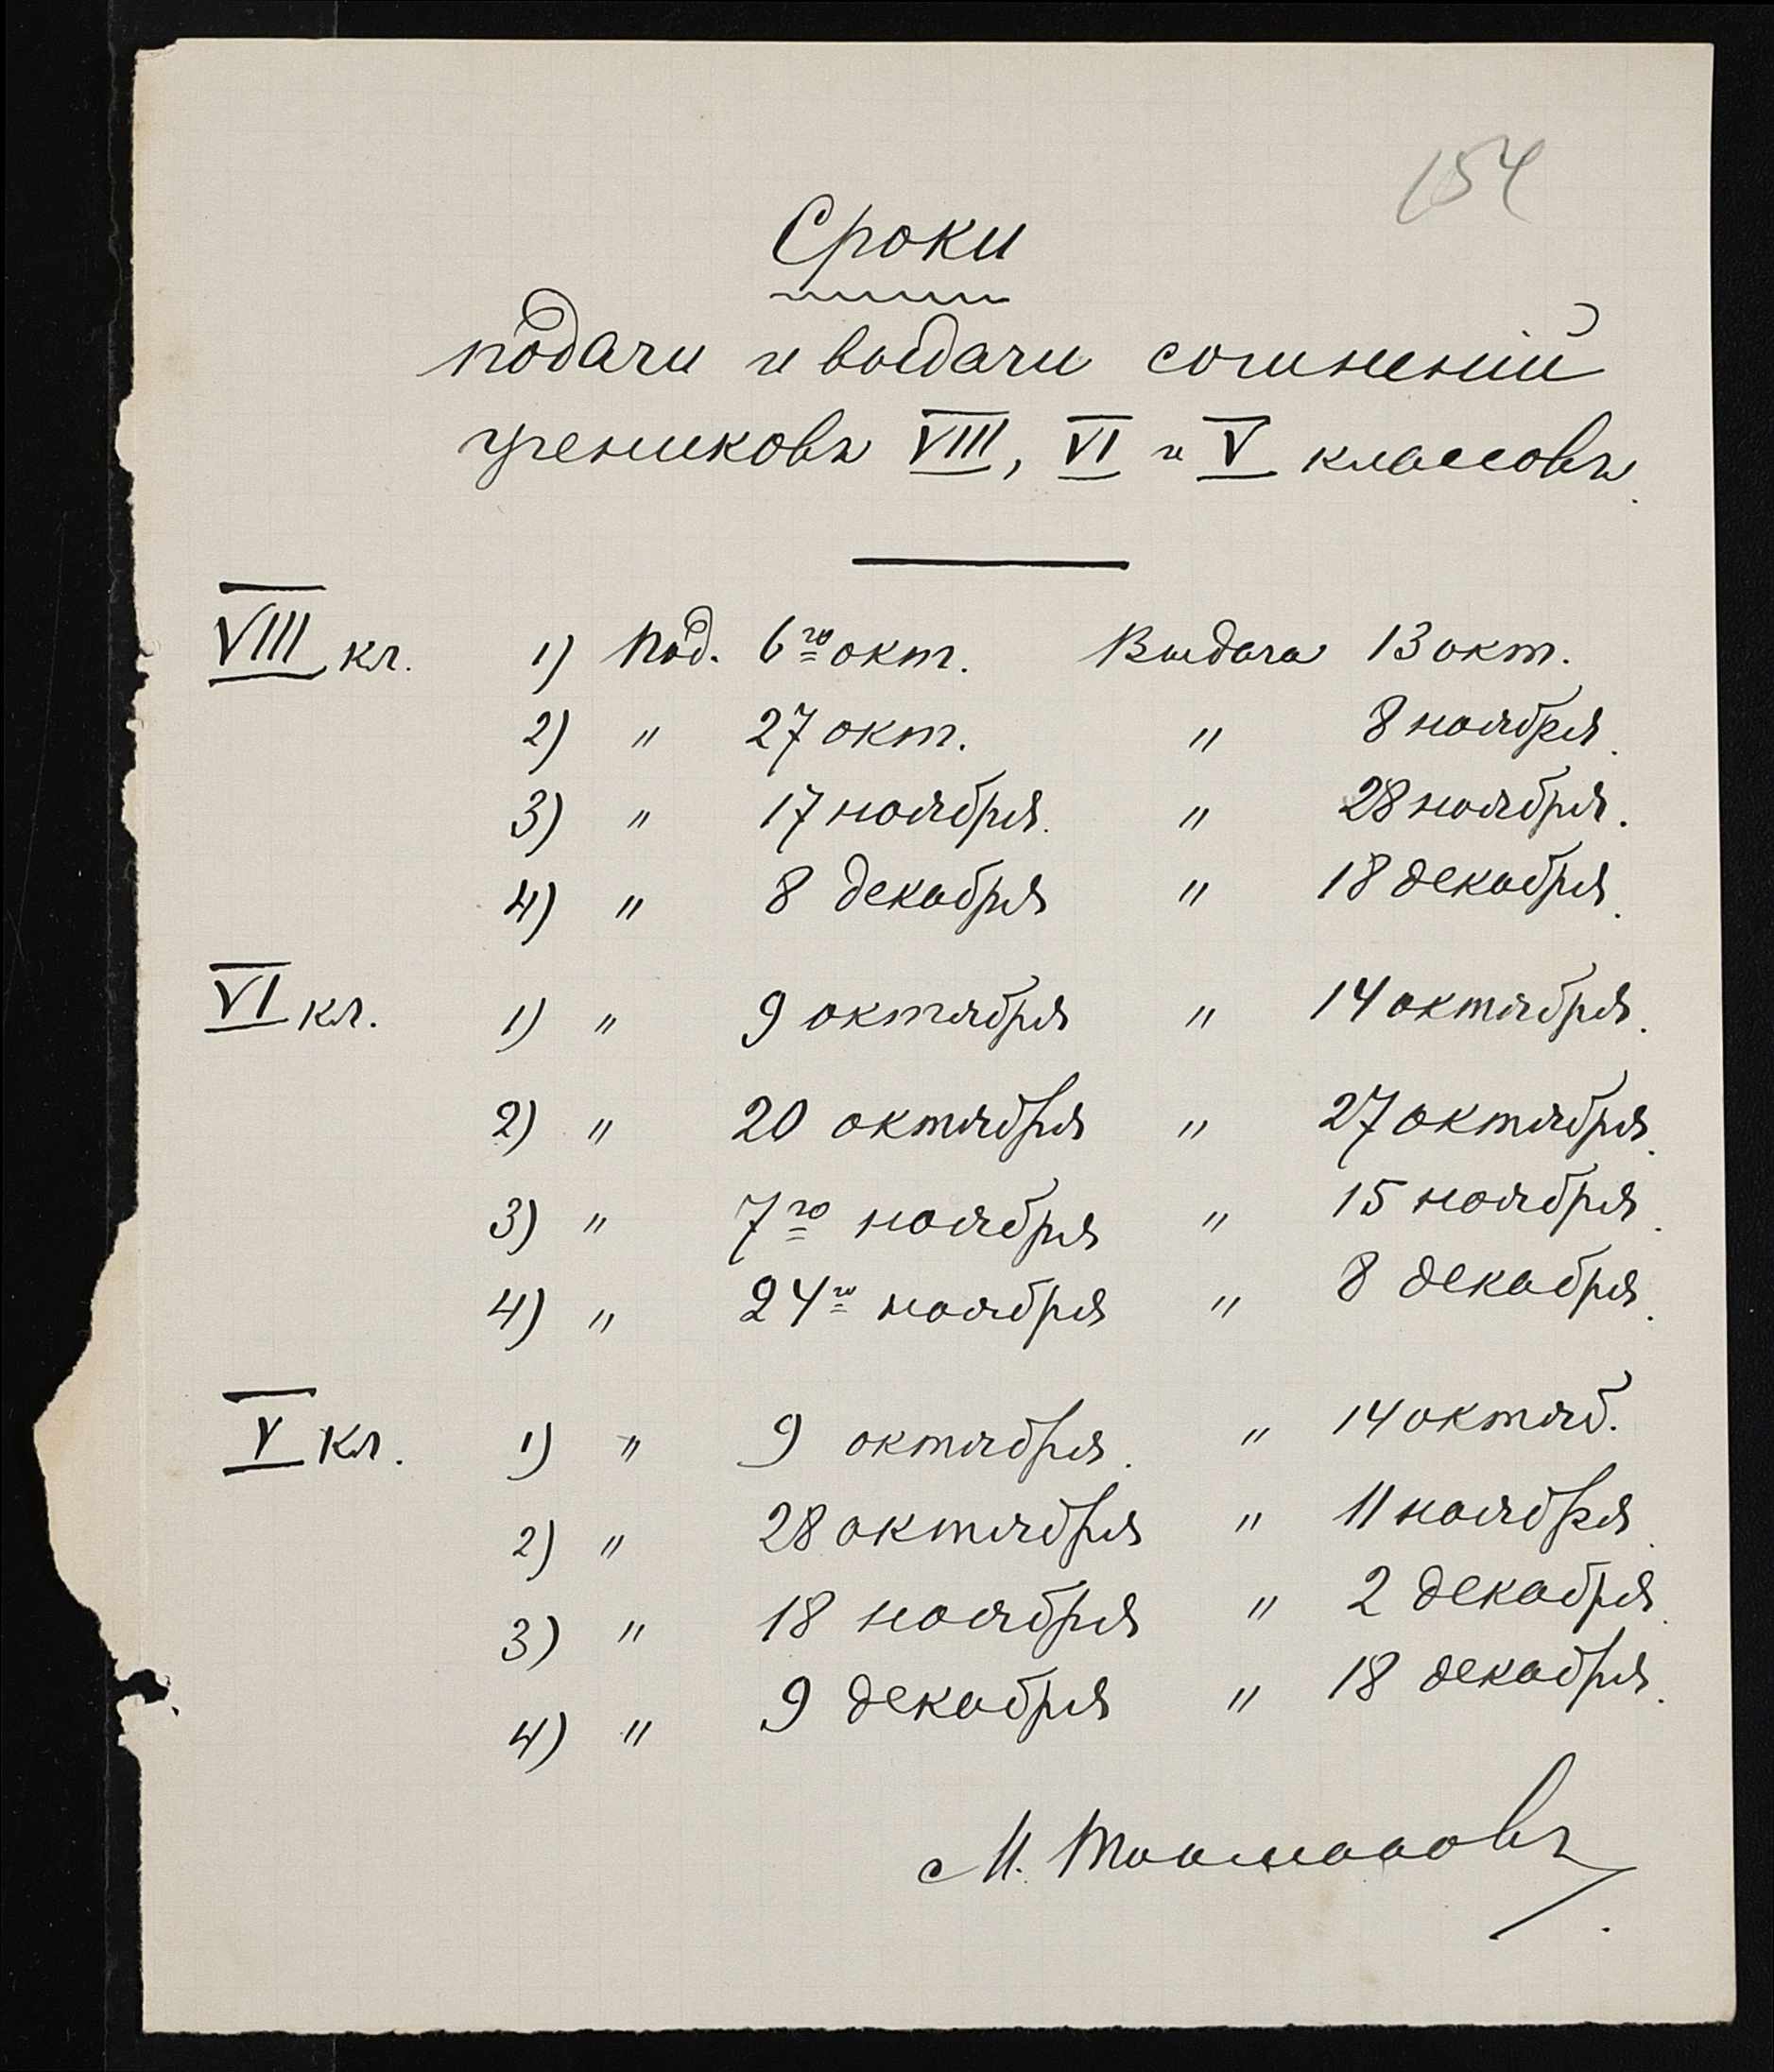 154
Сроки
подачи и выдачи сочиненій
учениковъ VIII, VI и V классовъ.
VIII кл. 1) Под. 6го окт. Выдача 13 окт.
2) " 27 окт. " 8 ноября.
3) " 17 ноября. " 28 ноября.
4) " 8 декабря " 18 декабря.
VI кл. 1) " 9 октября " 14 октября.
2) " 20 октября " 27 октября.
3) " 7го ноября " 15 ноября.
4) " 24го ноября " 8 декабря.
V кл. 1) " 9 октября. " 14 октяб.
2) " 28 октября " 11 ноября.
3) " 18 ноября " 2 декабря.
4) " 9 декабря " 18 декабря.
М.